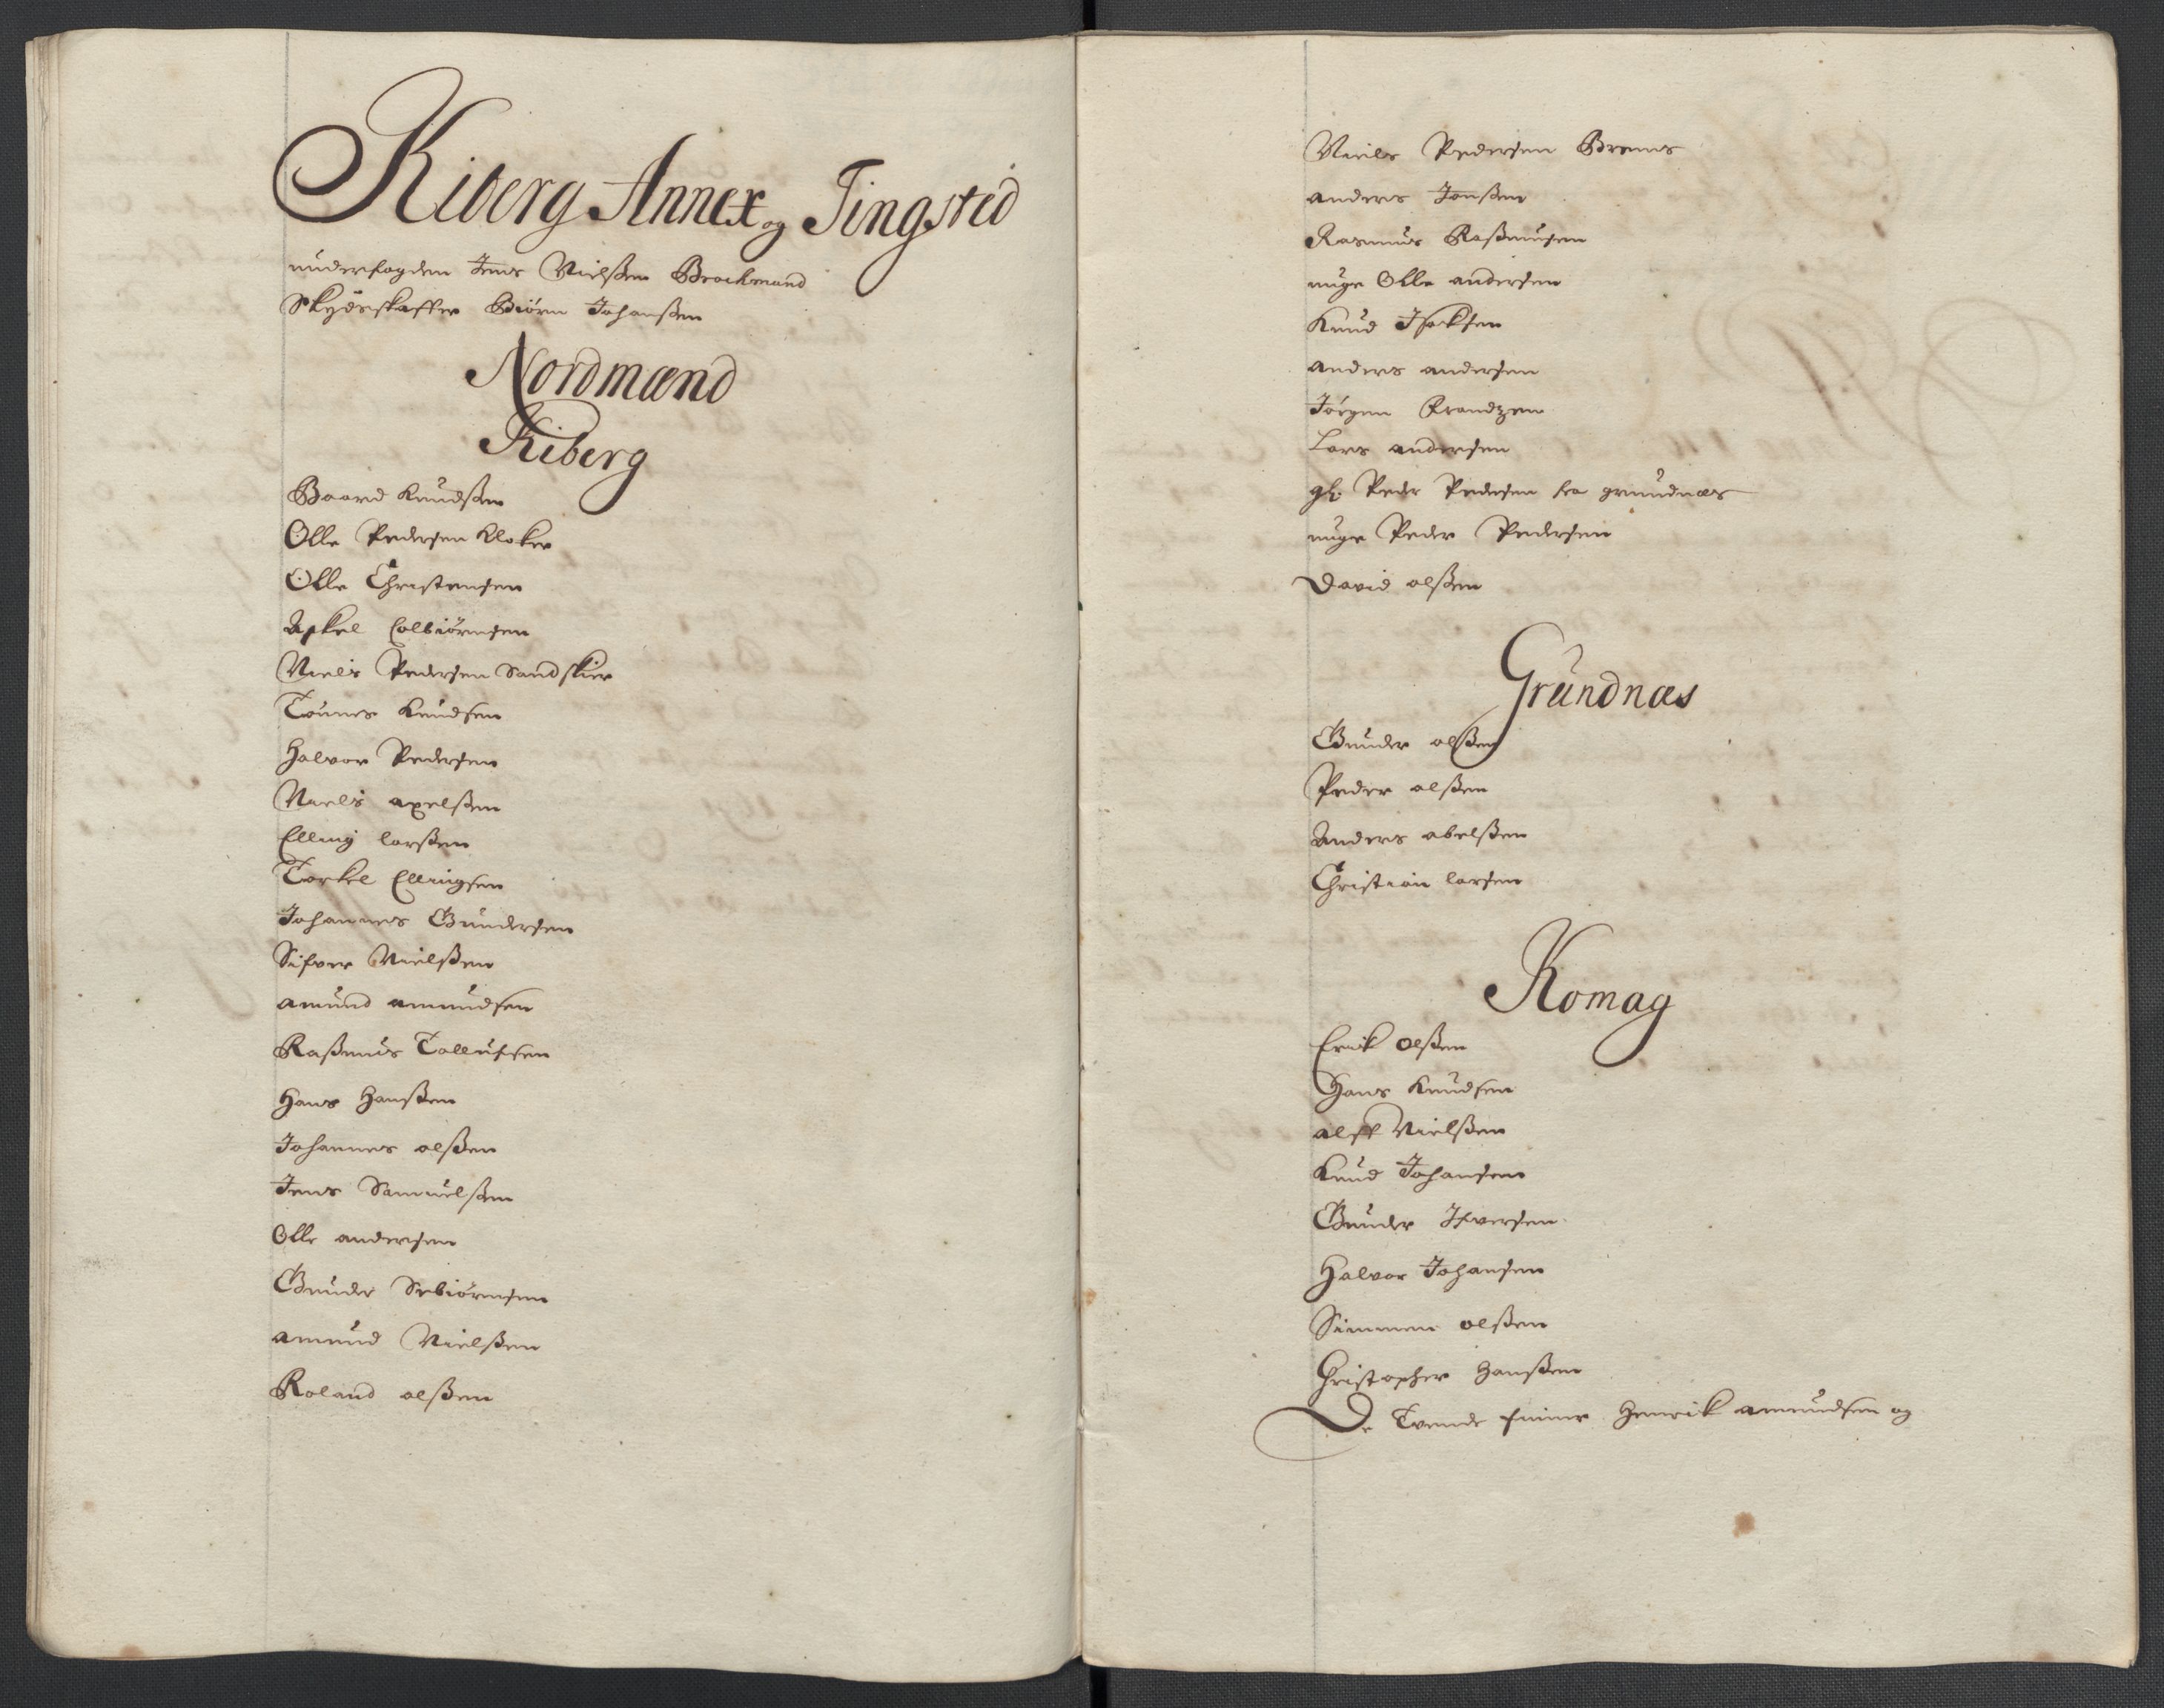 Kiberg Annex og Tingsted
underfogden Jens Nielßen Brockmand
Skydsskaffer Biörn Johanßen
Nordmænd
Kiberg
Baard Knudßen
Olle Pedersen Kloker
Olle Christensen
Askel Colbiörnsen
Niels Pedersen Sandskier
Tönnes Knudsen
Halvor Pedersen
Niels axelßen
Elling larßen
Torkel Ellingsen
Johannes Gundersen
Sifver Nielßen
amund amundsen
Raßmus Tollufsen
Hans Hanßen
Johannes olßen
Jens Samuelßen
Olle andersen
Gunder Sebiörnsen
amund Nielßen
Roland olßen
Niels Pedersen Brems
anders Jonßen
Rasmus Raßmusen
unge Olle andersen
Knud Isacksen
anders andersen
Jörgen Frandzen
Lars andersen
gl. Peder Pedersen fra grundnæs
unge Peder Pedersen
David olßen
Grundnæs
Gunder olßen
Peder olßen
Anders abelßen
Christian larsen
Komag
Erik olßen
Hans Knudsen
alff Nielßen
Knud Johansen
Gunder Ifversen
Halvor Johansen
Simmen olßen
Christopher Hanßen
De Tvende finner Henrik amundsen og